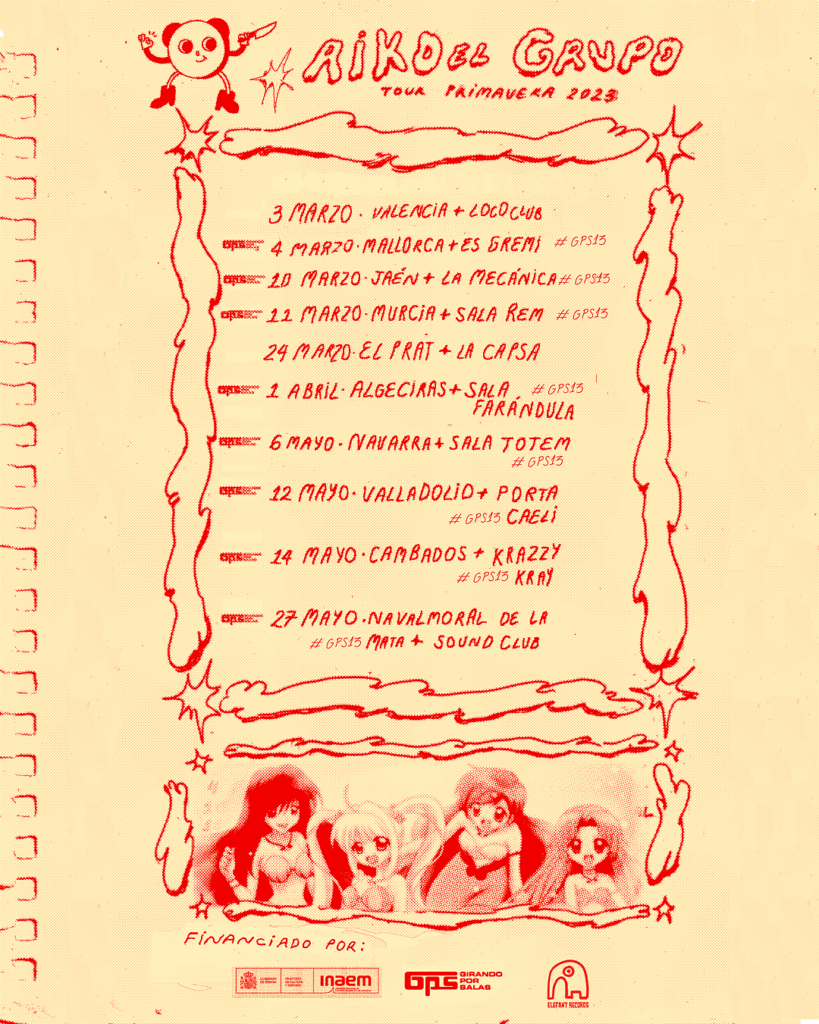 AIKO EL GRUPO
TOUR PRIMAVERA 2023
3 MARZO · VALENCIA + LOCO CLUB
GPS 4 MARZO · MALLORCA + ES GREMI #GPS13
GPS 10 MARZO · JAÉN + LA MECÁNICA #GPS13
GPS 11 MARZO · MURCIA + SALA REM #GPS13
24 MARZO · EL PRAT + LA CAPSA
GPS 1 ABRIL · ALGECIRAS + SALA #GPS13
FARÁNDULA
GPS 6 MAYO · NAVARRA + SALA TOTEM
#GPS13
GPS 12 MAYO · VALLADOLID + PORTA
#GPS13 CAELI
GPS 14 MAYO · CAMBADOS + KRAZZY
#GPS13 KRAY
GPS 27 MAYO · NAVALMORAL DE LA
#GPS13 MATA + SOUND CLUB
FINANCIADO POR:
GOBIERNO DE ESPAÑA
inaem
GPS GIRANDO
POR
SALAS
ELEFANT RECORDS